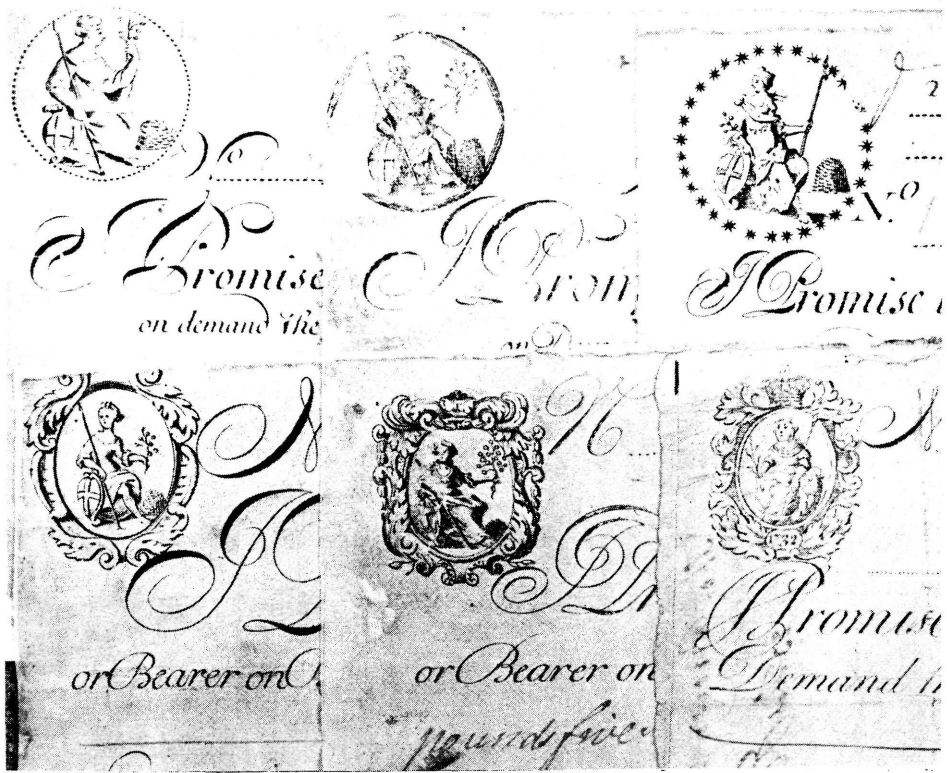 No
I Promise
on demand the
I Prom
on Dem
2
No
I Promise t
N
I P
or Bearer on D
N
I Pr
or Bearer on
pounds five
N
I Promise
Demand th